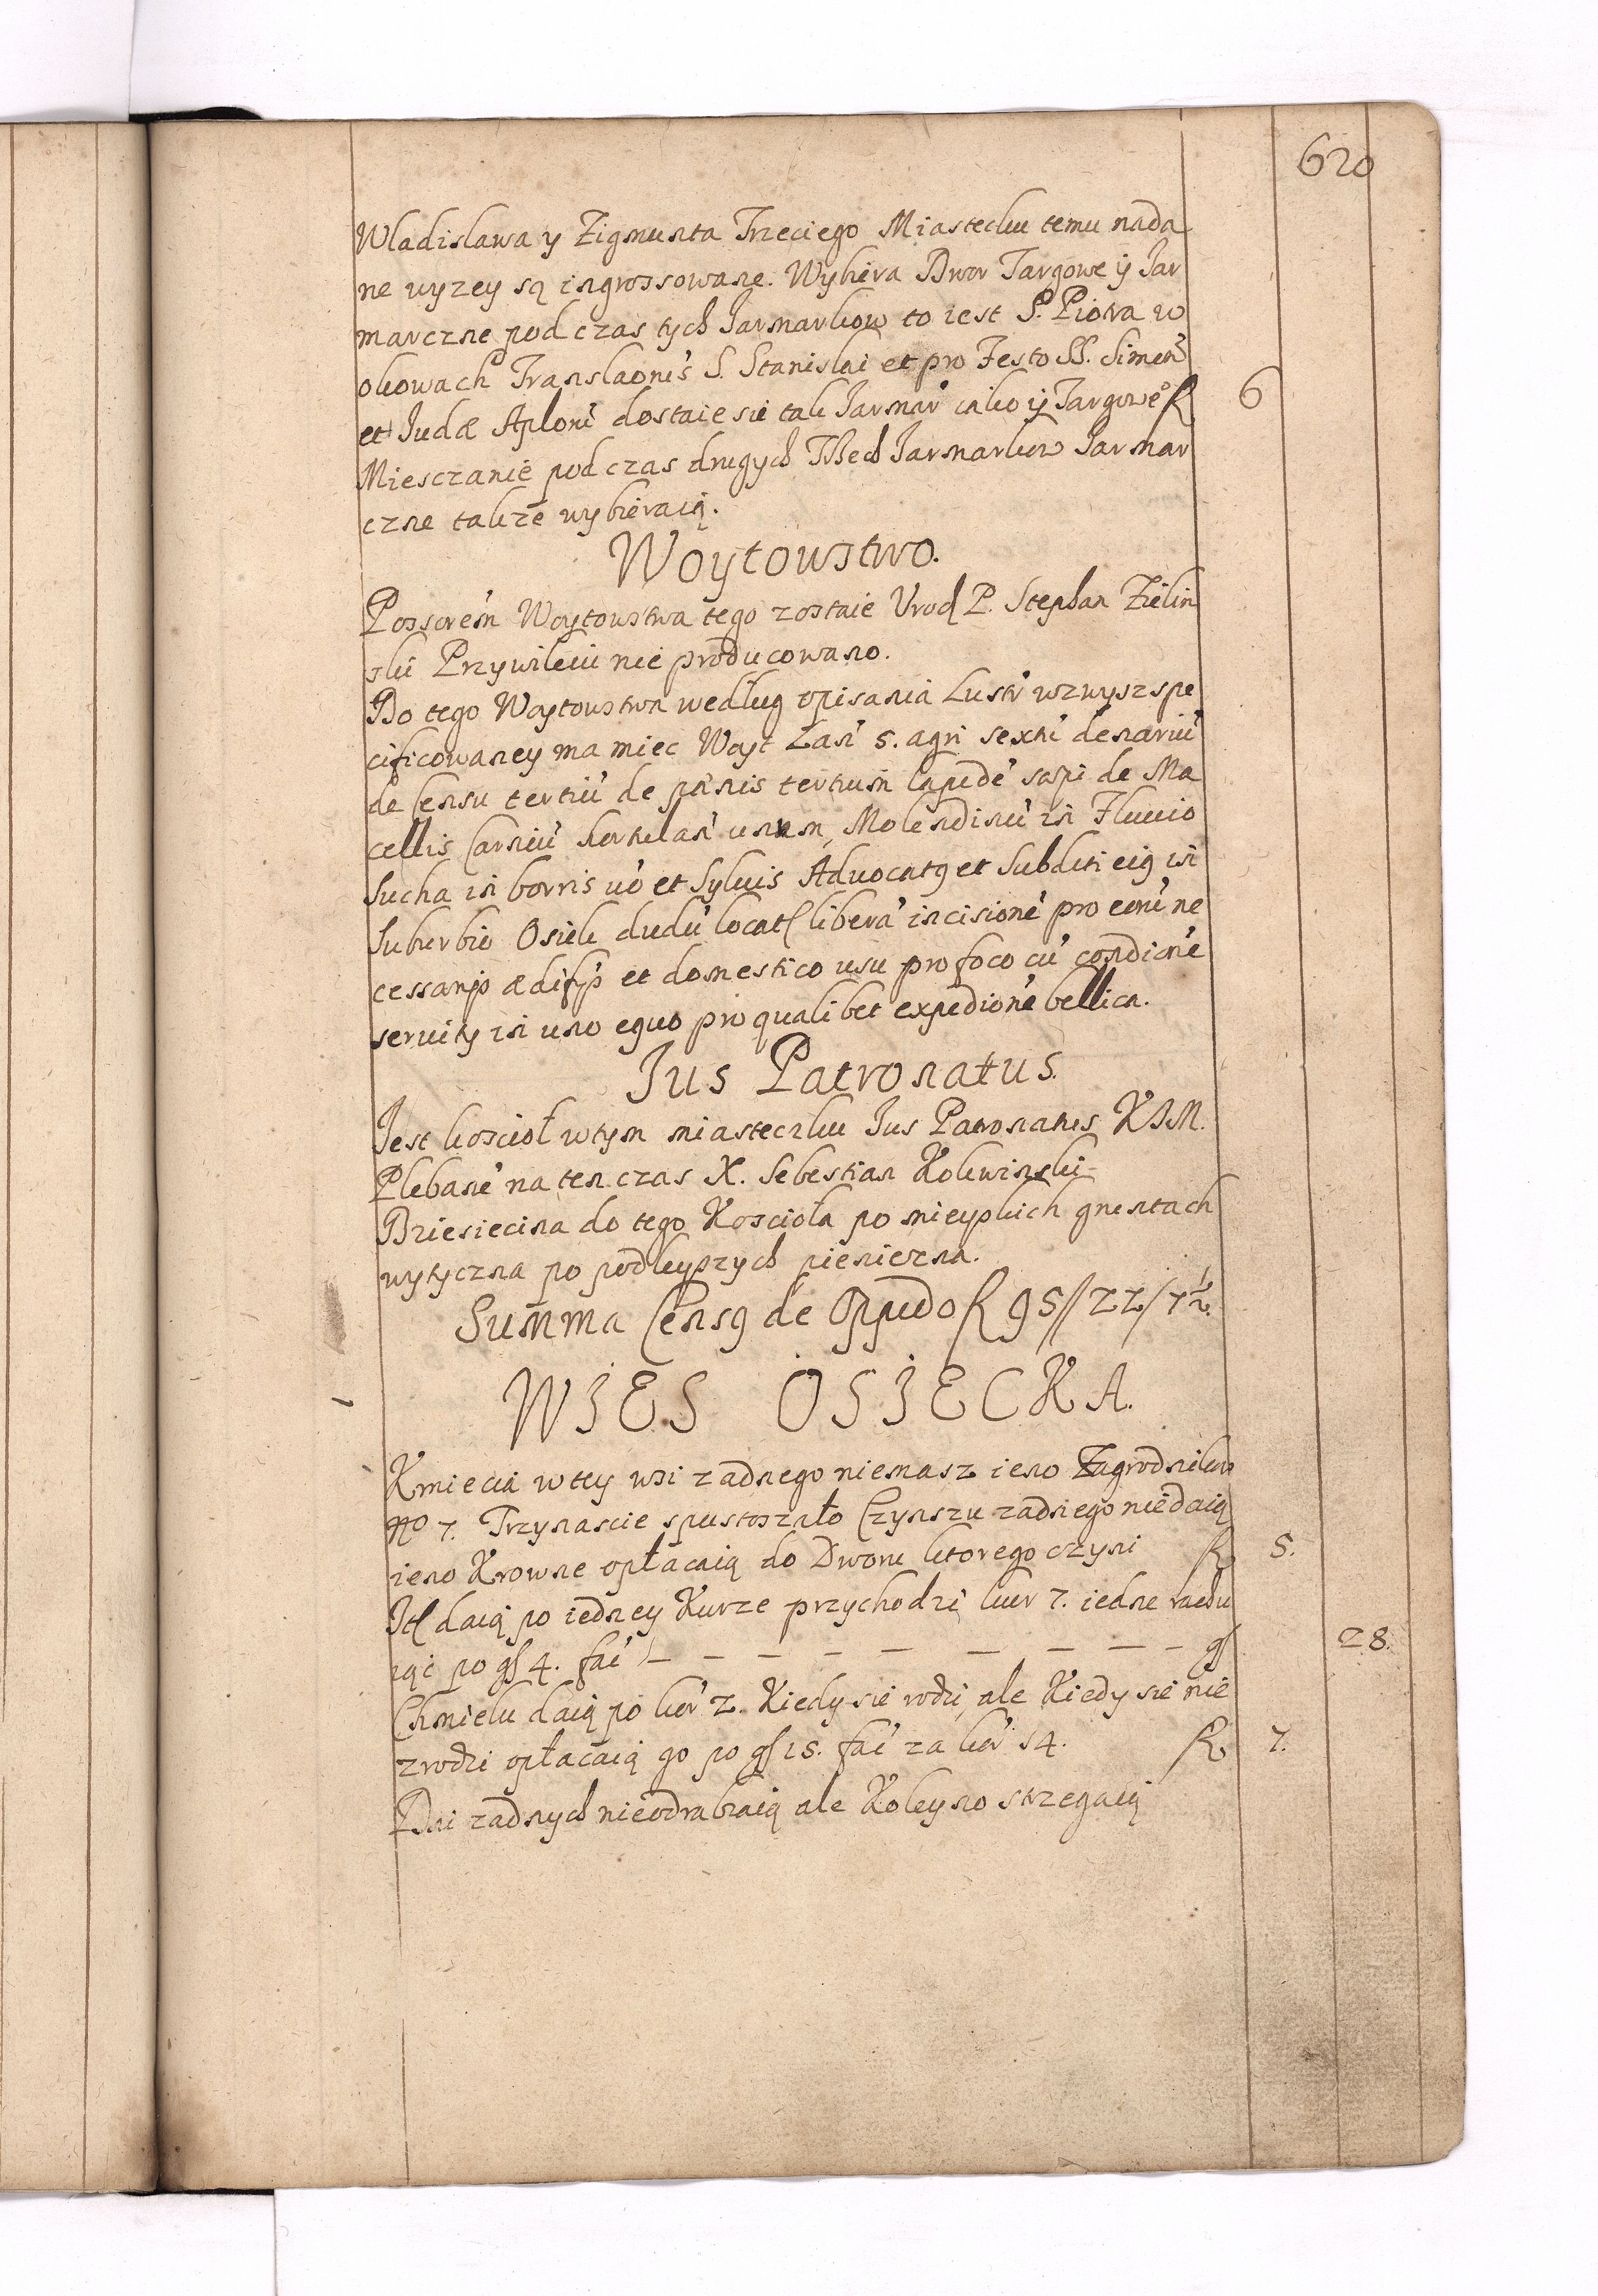 620
Wladislawa y Zigmunta Trzeciego Miasteczku temu nada
ne wyzey są ingrossowane. Wybiera Dwor Targowe ÿ Jar
marczne pod czas tych Jarmarkow to iest S. Piotra w
okowach Translaonis S. Stanislai et pro Festo SS. Simon
et Judæ Aplom dostaie sie tak Jarmar iako ÿ Targowe f 6
Miesczanie pod czas drugych Jarmarkow Jarmar
czne takze wybieraią.
Woytowstwo.
Possorem Woytowstwa tego zostaie Urod P. Stephan Zielin
ski Przywileiu nie producowano.
Do tego Woytowstwa według opisania Lustr wzwysz spe
cificowaney ma miec Woyt Łan 5. agri sexti denariu
de Censu tertiu de pænis tertium lapide sæpi de Ma
cellis Carniu hortulan unum, Molendinu in Fluvio
Sucha in borris vo et Sylvis Advocatq et Subditi eiq in
Suburbio Osiek dudu locat libera incisione pro eoru ne
cessarijs ædifijs et domestico usu pro foco cu condione
servitq in uno equo pro qualibet expedione bellica.
Jus Patronatus.
Jest koscioł w tym miasteczku Jus Patronatus KJM.
Plebane na ten czas X. Sebestian Kokwinski
Dziesiecina do tego Kosciola po mieyskich gruntach
wytyczna po podleyszych pieniezna.
Summa Censq de Oppido f 95//22/7½
WJES OSJECKA.
Kmiecia w tey wsi zadnego niemasz ieno Zagrodnikow
No 7. Trzynascie spustoszało Czynszu zadnego niedaią
ieno Krowne opłacaią do Dworu ktorego czyni f 5.
It daią po iedney Kurze przychodzi kur 7. iedne redu
iąc po gs 4. fac — — — — — — — gs 28.
Chmielu daią po kor 2. Kiedy sie rodzi, ale Kiedy sie nie
zrodzi opłacaią go po gs 15. fac za kor 14. f 7.
Dni zadnych nieodrabiaią ale Koleyno strzegaią